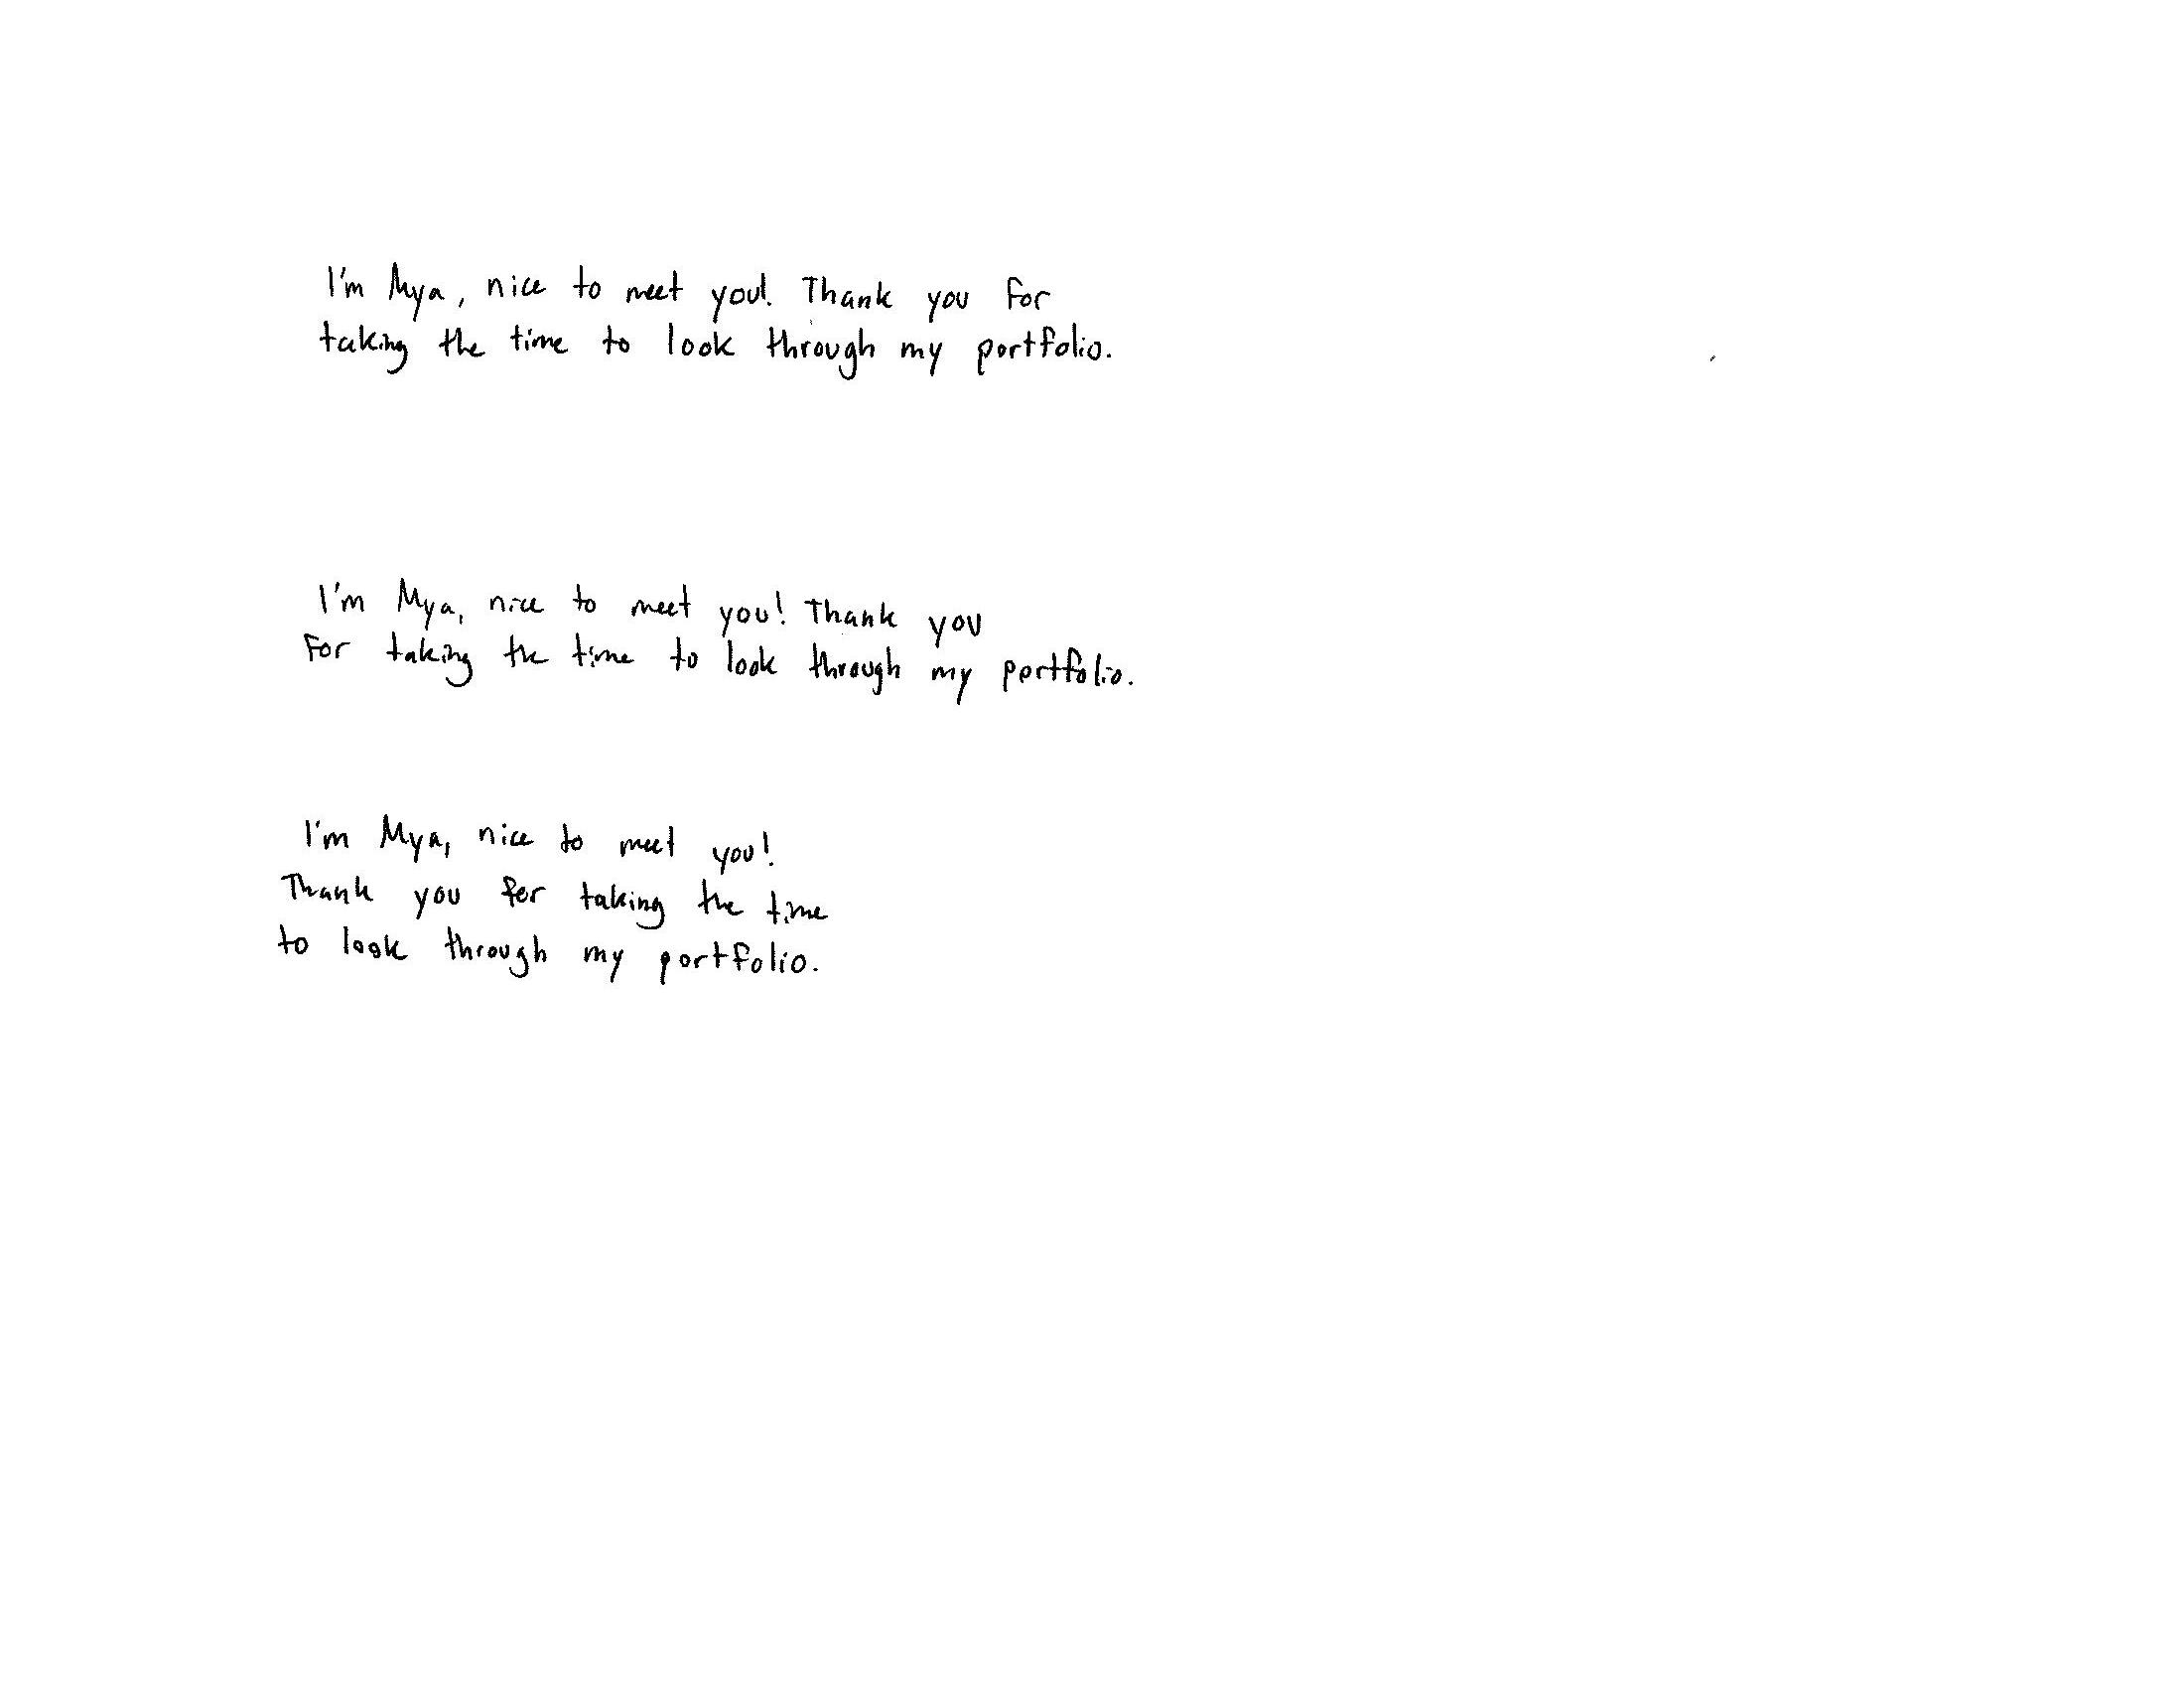 I'm Mya, nice to meet you! Thank you for
taking the time to look through my portfolio.
I'm Mya, nice to meet you! Thank you
For taking the time to look through my portfolio.
I'm Mya, nice to meet you!
Thank you for taking the time
to look through my portfolio.